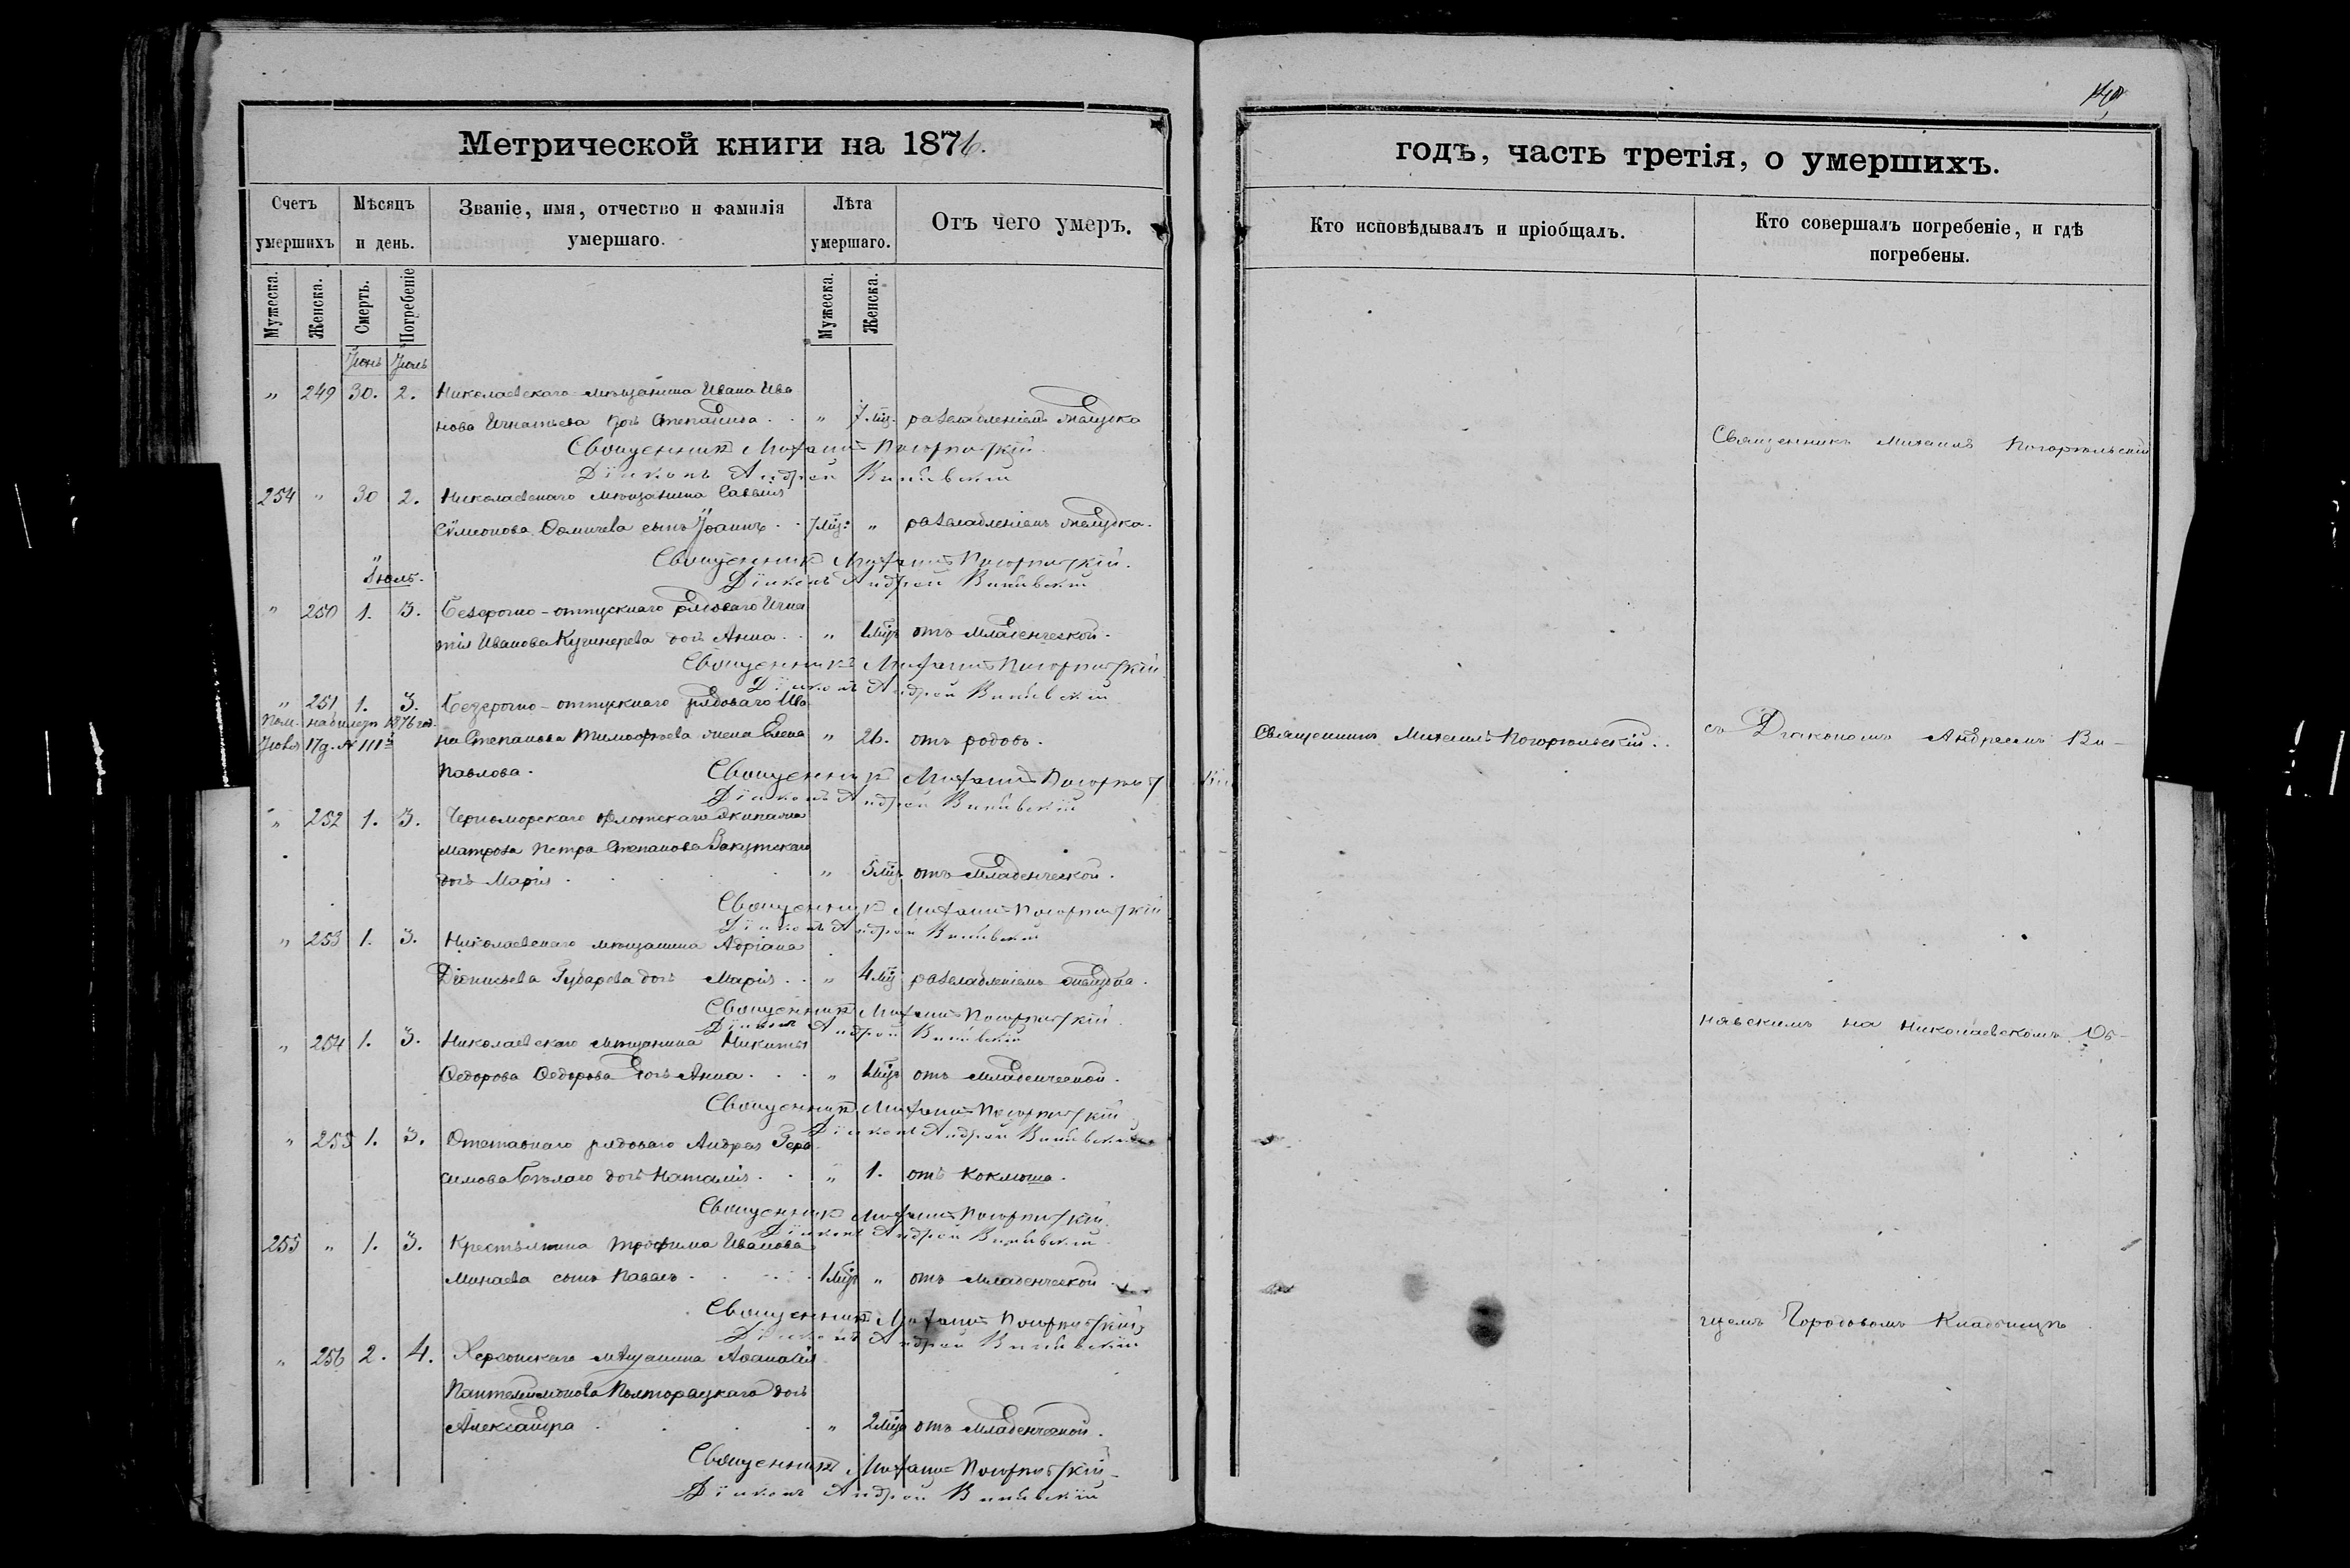 Метрической книги на 1876.
Счетъ умершихъ
Мѣсяцъ и день.
Званіе, имя, отчество и фамилія умершаго.
Лѣта умершаго.
Отъ чего умеръ.
Мужеска. Женска. Смерть. Погребеніе Мужеска. Женска.
Іюнь Іюль
" 249 30. 2. Николаевскаго мѣщанина Ивана Ива
нова Игнатьева дочь Степанида . . " 7 мѣц. разслабленіемъ желудка
Священникъ Михаилъ Погорѣльскій.
Діаконъ Андрей
254 " 30 2. Николаевскаго мѣщанина Саввы
Сѵмеонова сынъ Іоаннъ . . 7 мѣц. " разслабленіемъ желудка.
Священникъ Михаилъ Погорѣльскій.
Діаконъ Андрей
Іюль.
" 250 1. 3. Безсрочно-отпускнаго рядоваго Игна
тія Иванова дочь Анна . . " 1 мѣц. отъ младенческой.
Священникъ Михаилъ Погорѣльскій.
Діаконъ Андрей
" 251 1. 3. Безсрочно-отпускнаго рядоваго Ива
1876 год.
на Степанова Тимофѣева жена Елена " 26. отъ родовъ.
Павлова.
Священникъ Михаилъ Погорѣльскій
Діаконъ Андрей
" 252 1. 3. Черноморскаго флотскаго экипажа
матроза Петра Степанова Закутскаго
дочь Марія . . . . " 5 мѣц. отъ младенческой.
Священникъ Михаилъ Погорѣльскій
Діаконъ Андрей
" 253 1. 3. Николаевскаго мѣщанина Адріана
Діонисьева Губарева дочь Марія . . " 4 мѣц. разслабленіемъ желудка.
Священникъ Михаилъ Погорѣльскій.
Діаконъ Андрей
" 254 1. 3. Николаевскаго мѣщанина Никиты
Ѳедорова Ѳедорова дочь Анна . . . " 1 мѣц. отъ младенческой.
Священникъ Михаилъ Погорѣльскій
Діаконъ Андрей
" 255 1. 3. Отставнаго рядоваго Андрея Гера
симова Бѣлаго дочь Наталія . . " 1. отъ коклюша.
Священникъ Михаилъ Погорѣльскій.
Діаконъ Андрей
255 " 1. 3. Крестьянина Трофима Иванова
Минаева сынъ Павелъ . . . . 1 мѣц. " отъ младенческой.
Священникъ Михаилъ Погорѣльскій
Діаконъ Андрей
" 256 2. 4. Херсонскаго мѣщанина Аѳанасія
Пантелеимонова Полторацкаго дочь
Александра . . . . " 2 мѣц. отъ младенческой.
Священникъ Михаилъ Погорѣльскій
Діаконъ Андрей
годъ, часть третія, о умершихъ.
Кто исповѣдывалъ и пріобщалъ.
Кто совершалъ погребеніе, и гдѣ погребены.
Священникъ Михаилъ Погорѣльскій
Священникъ Михаилъ Погорѣльскій..
съ Діакономъ Андреемъ Ви-
нявскимъ на Николаевскомъ Об-
щемъ Городовомъ Кладбищѣ.